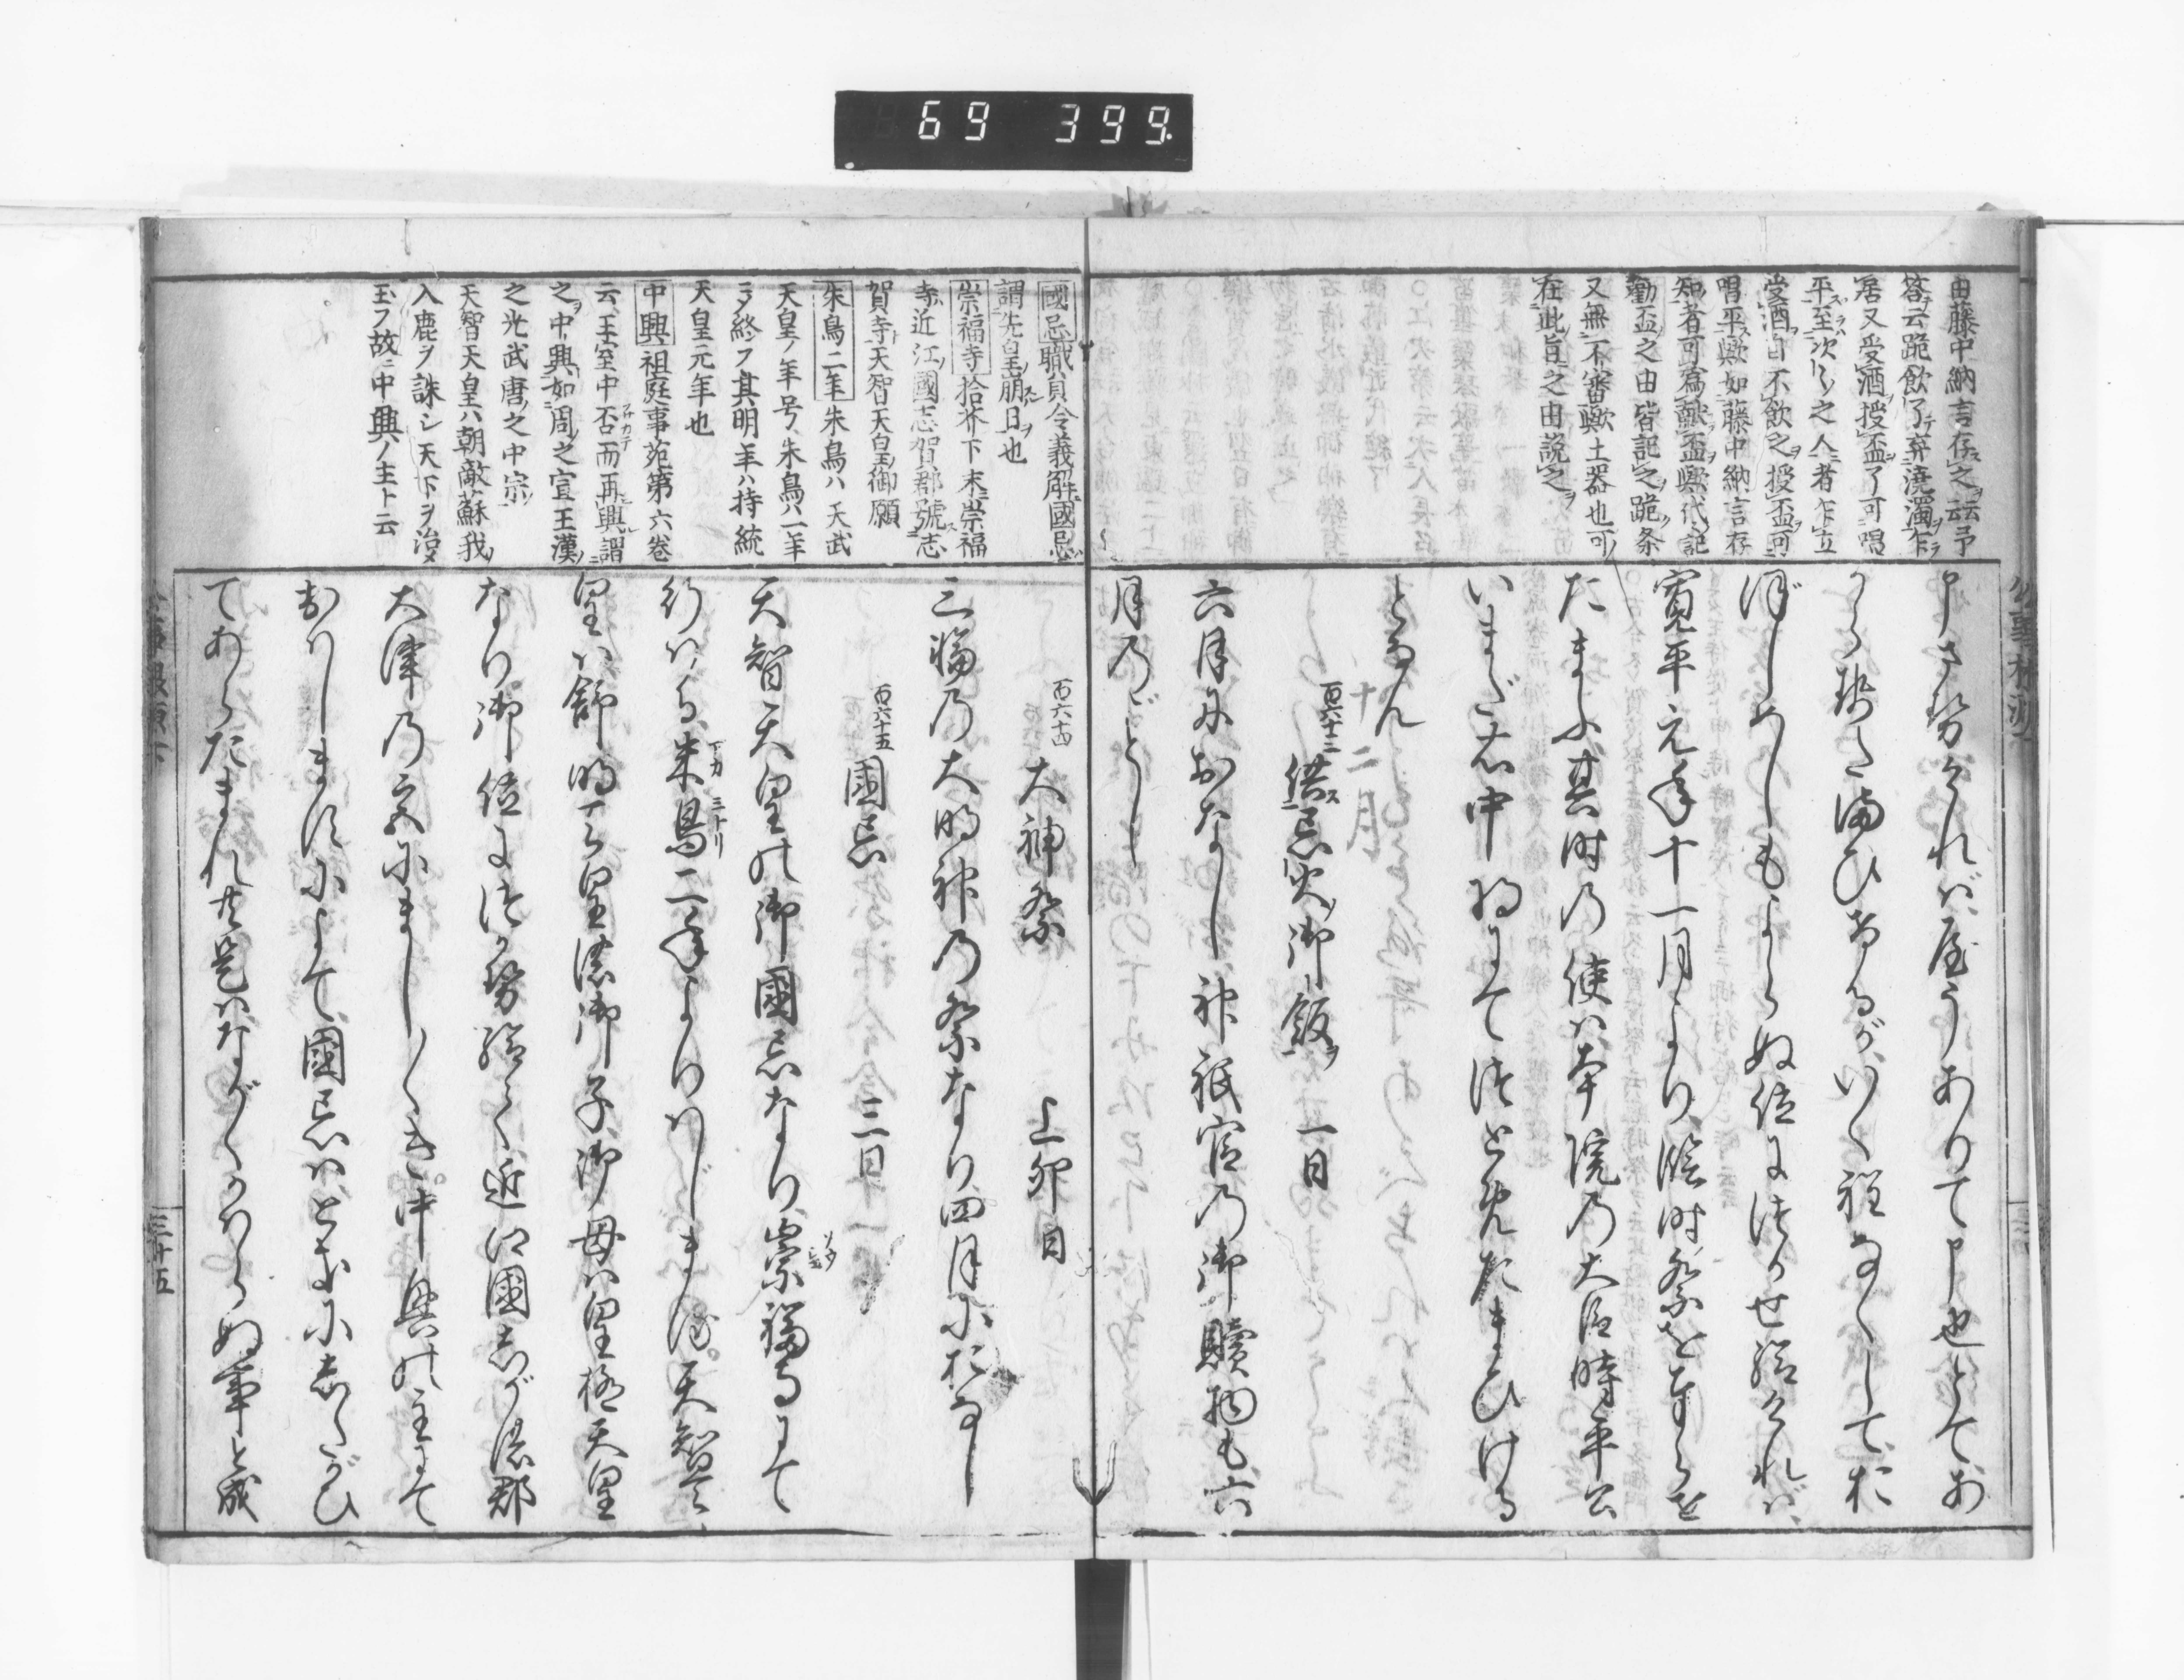 69 399
由藤中納言存之云云予
答云跪飲了弃澆濁乍
居又受酒授盃了可唱
平至次々之人者乍立
受酒自不飲之授盃可
唱平歟如藤中納言存
知者可為献盃歟代記
勸盃之由皆記之跪条
又無不審歟土器也可
在此旨之由説之
申させ給ければ屋うありて申也とてお
つかせ給ひけるがいく程なくしてお
ぼしめしもよらぬ位につかせ給ければ
寛平元年十一月より臨時祭をはしらを
たまふ其時の使は本院の大臣時平公
いまだ中将にてつとめたまひける
となん
十二月
百六十三 供忌火御飯 一日
六月におなし神祇官の御贖物も六
月のごとし
國忌職員令義解國忌
謂先皇崩日也
崇福寺拾芥下末崇福
寺近江國志賀郡號志
賀寺天智天皇御願
朱鳥二年朱鳥ハ天武
天皇ノ年号朱鳥ハ一年
ニテ終フ其明年ハ持統
天皇元年也
中興祖庭事苑第六卷
云王室中否而再興謂
之中興如周之宣王漢
之光武唐之中宗
天智天皇ハ朝敵蘇我
入鹿ヲ誅シ天下ヲ治メ
玉フ故ニ中興ノ主ト云
百六十四 大神祭 上卯日
三輪の大明神の祭なり四月におなし
百六十五 國忌 三日
天智天皇の御國忌なり崇福寺にて
行はる朱鳥二年よりはじまる天智天
皇は舒明天皇の御子御母は皇極天皇
なり御位につかせ給て近江國志が の郡
大津の宮にましましき中興の主にて
おはしますによて國忌はとをにしたがひ
てあらたまれ共是はながくかはらぬ事と成
三十五